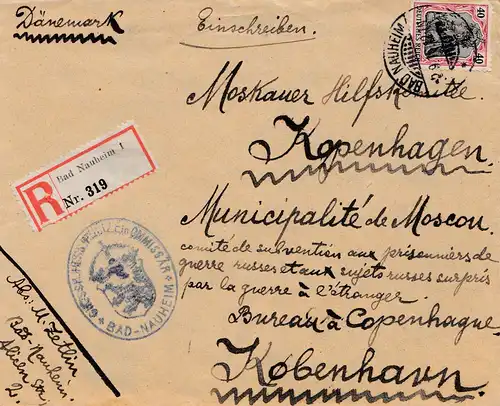 Dänemark
Einschreiben.
40 40
BAD NAUHEIM
Moskauer Hilfskomitee
Kopenhagen
R
Bad Nauheim 1
Nr. 319
Municipalité de Moscou.
comité de subvention aux prisonniers de
guerre russes et aux sujets russes surpris
par la guerre à l'étranger.
Bureau à Copenhague
København.
GROSSH. HESS. POLIZEI
BAD-NAUHEIM
Abs: M. Zetlin
Bad Nauheim.
Alicen Str,
2.